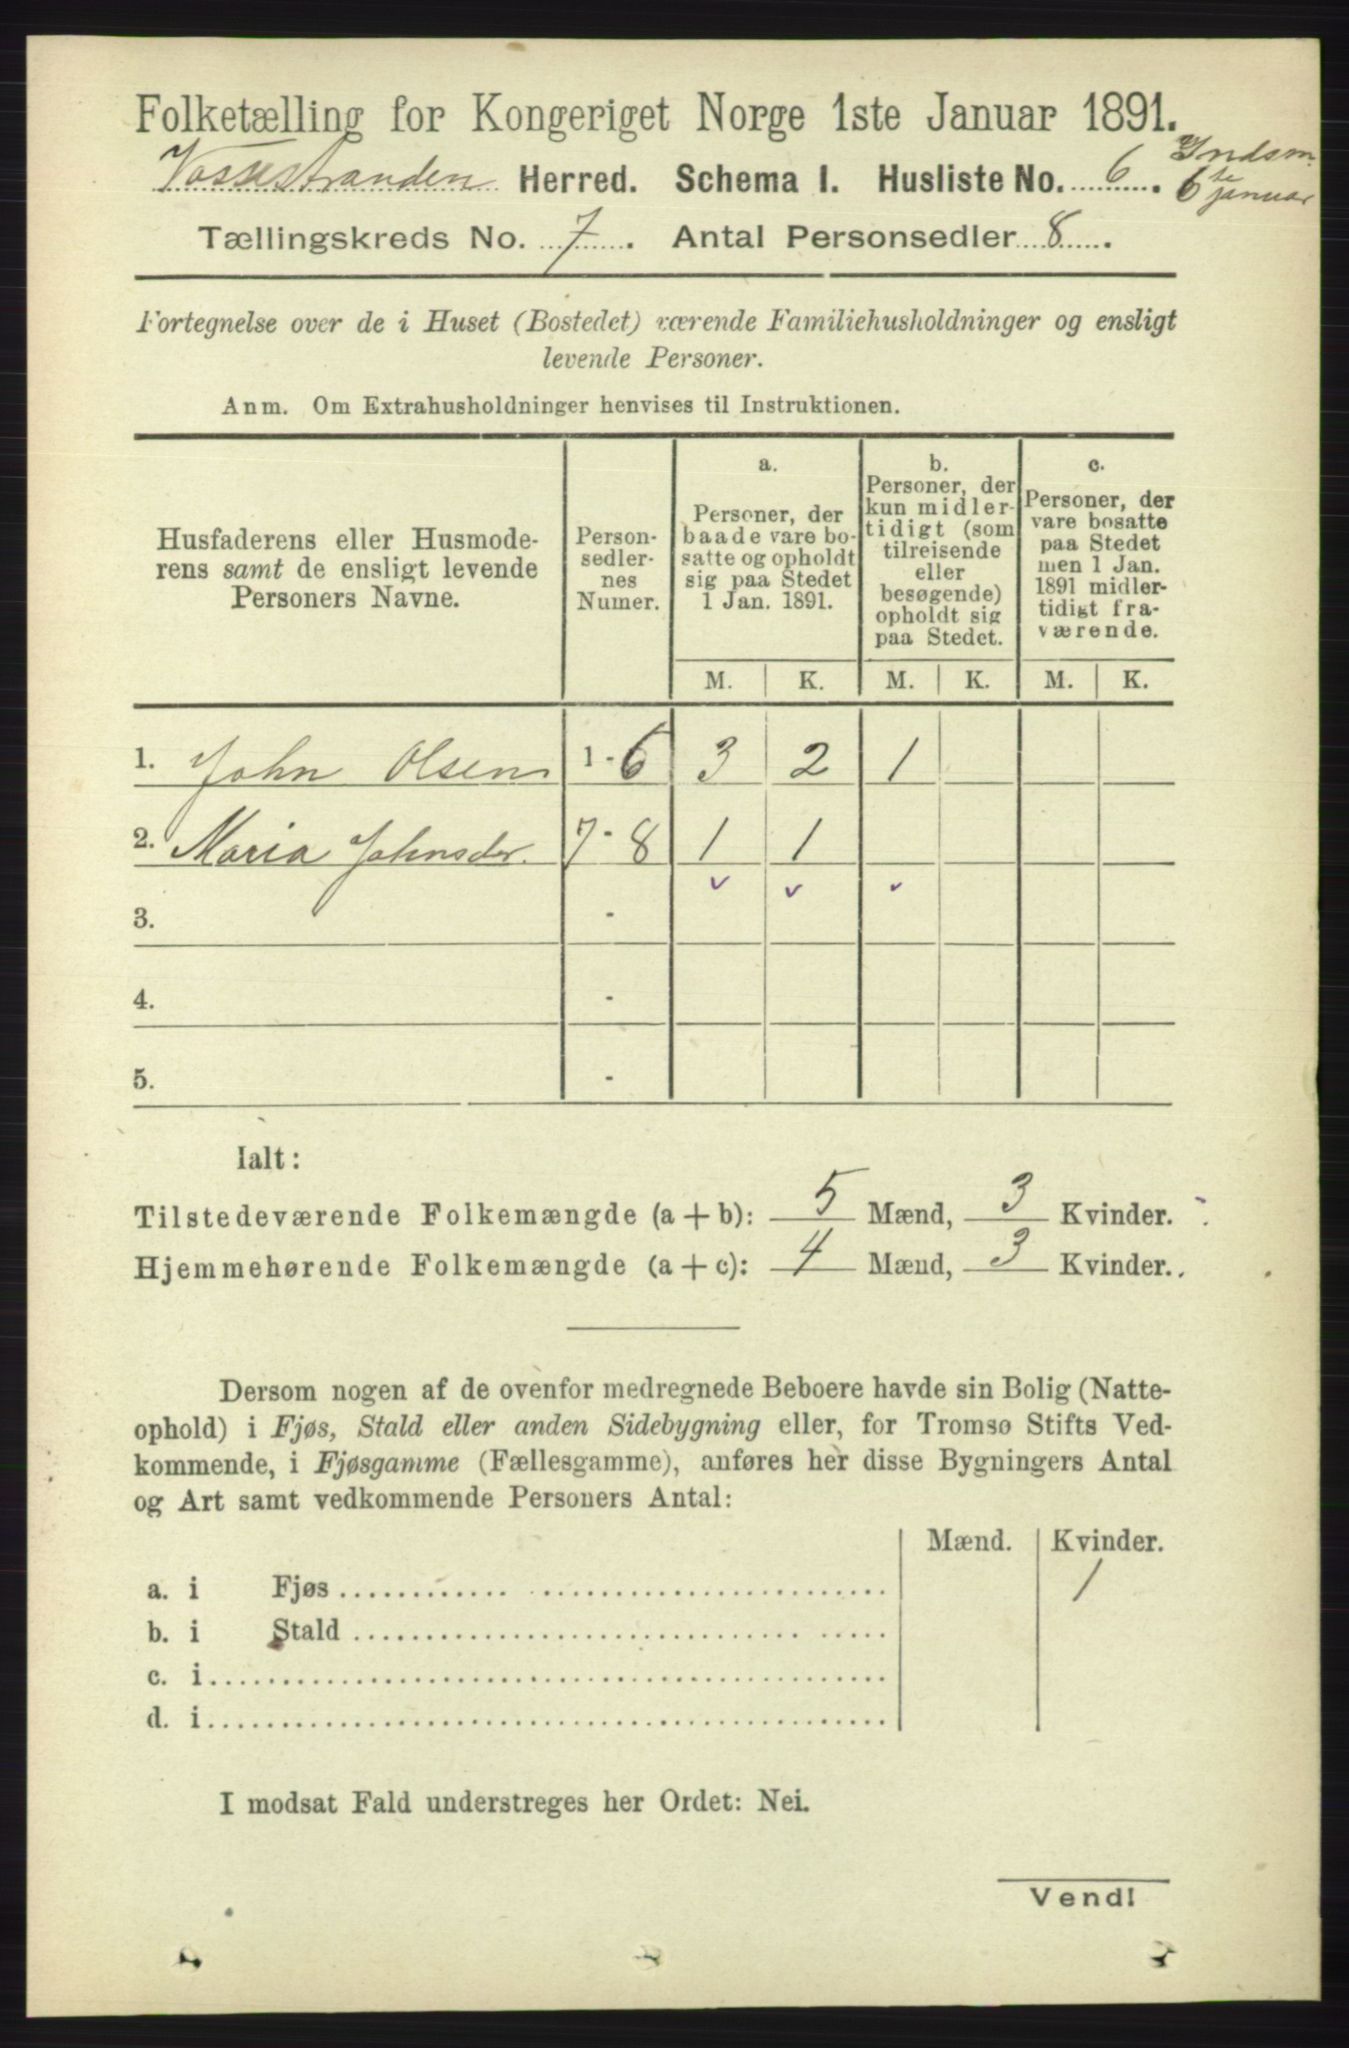 Folketælling for Kongeriget Norge 1ste Januar 1891.
Vossestranden Herred. Schema I. Husliste No. 6.
Indsm.
6te januar
Tællingskreds No. 7. Antal Personsedler 8.
Fortegnelse over de i Huset (Bostedet) værende Familiehusholdninger og ensligt
levende Personer.
Anm. Om Extrahusholdninger henvises til Instruktionen.
Husfaderens eller Husmode-
rens samt de ensligt levende
Personers Navne.
Person-
sedler-
nes
Numer.
a.
Personer, der
baade vare bo-
satte og opholdt
sig paa Stedet
1 Jan. 1891.
b.
Personer, der
kun midler-
tidigt (som
tilreisende
eller
besøgende)
opholdt sig
paa Stedet.
c.
Personer, der
vare bosatte
paa Stedet
men 1 Jan.
1891 midler-
tidigt fra-
værende.
M. K. M. K. M. K.
1. John Olsen 1-6 3 2 1
2. Maria Johnsdr. 7-8 1 1
3. -
4. -
5. -
Ialt:
Tilstedeværende Folkemængde (a + b): 5 Mænd, 3 Kvinder.
Hjemmehørende Folkemængde (a + c): 4 Mænd, 3 Kvinder.
Dersom nogen af de ovenfor medregnede Beboere havde sin Bolig (Natte-
ophold) i Fjøs, Stald eller anden Sidebygning eller, for Tromsø Stifts Ved-
kommende, i Fjøsgamme (Fællesgamme), anføres her disse Bygningers Antal
og Art samt vedkommende Personers Antal:
Mænd. Kvinder.
a. i Fjøs 1
b. i Stald
c. i
d. i
I modsat Fald understreges her Ordet: Nei.
Vend!